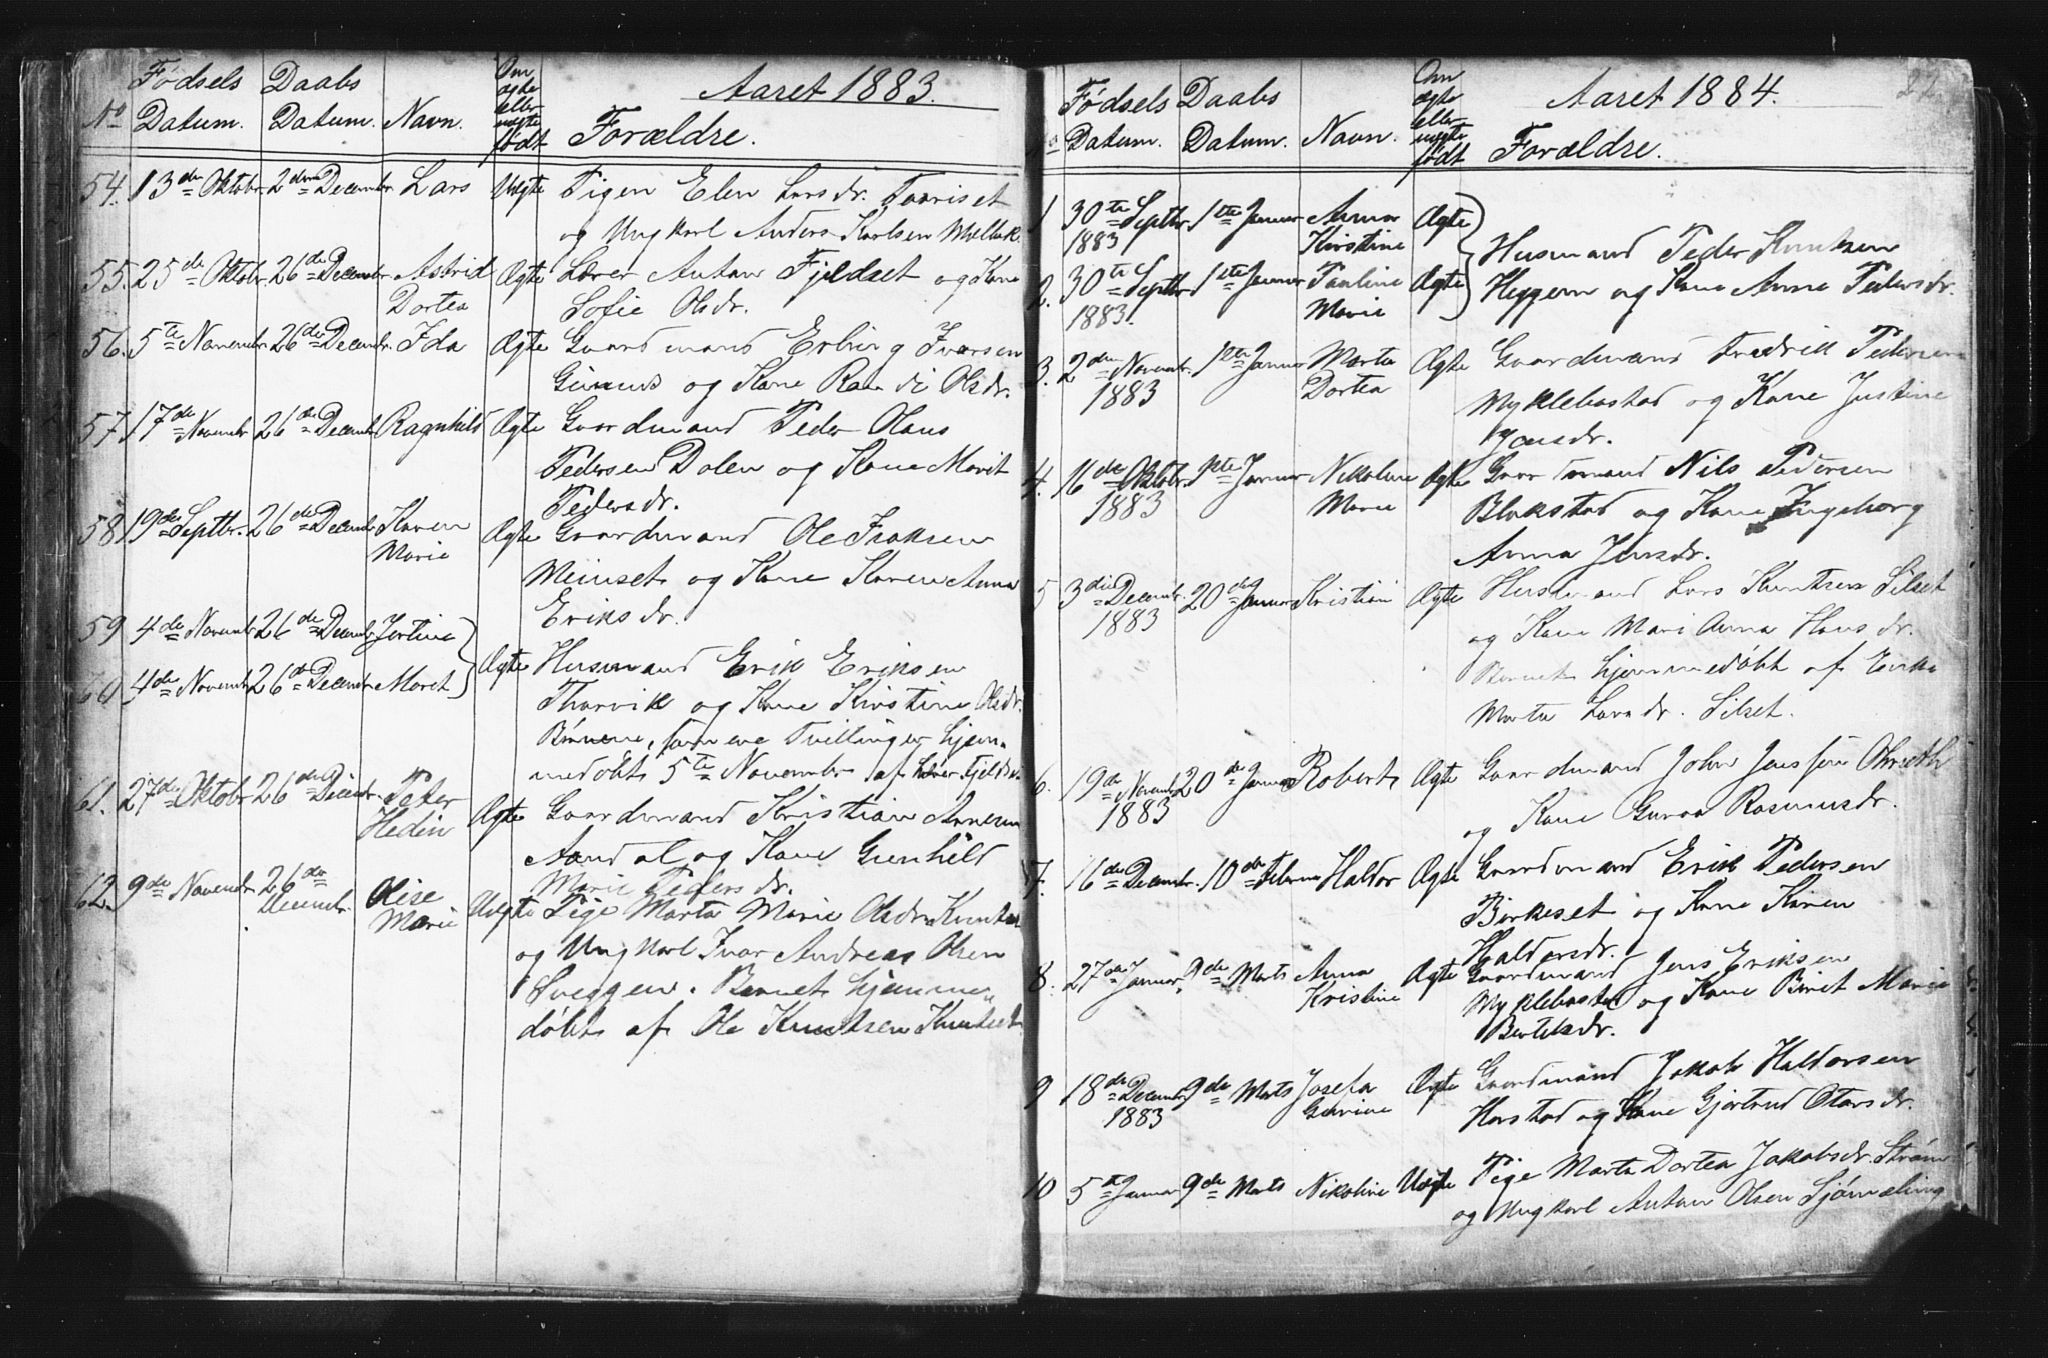 Aaret 1883.
No Fødsels Datum. Daabs Datum. Navn. Om ægte eller uægte født Forældre.
54. 13de Oktobr. 2den Decembr Lars Uægte Pigen Elen Larsdr. Taariset
og Ungkarl Anders Karlsen
55. 25de Oktobr. 26de Decembr Astrid Ægte Lærer Antan Fjeldset og Kone
Dortea Sofie Olsdr.
56. 5te Novembr. 26de Decembr. Ida Ægte Gaardmand Erling Ivarsen
Gimnes og Kone Randi Olsdr.
57 17de Novembr 26de Decembr Ragnhild Ægte Gaardmand Peder Olaus
Pedersen Dalen og Kone Marit
Pedersdr.
58 19de Septbr. 26de Decembr Karen Ægte Gaardmand Ole Isaksen
Marie Meiinset og Kone Karen Anna
Eriksdr.
59 4de Novembr 26de Decembr Jertine
60 4de Novembr 26de Decembr Maret Ægte Husmand Erik Eriksen
Thorvik og Kone Kirstine Olsdr.
Børnene, som ere Tvillinger hjem-
medøbt 5te Novembr af Lærer Fjeldset
61. 27de Oktobr 26de Decembr. Peter Ægte Gaardmand Kristian Arnesen
Hedin Aandal og Kone Gunhild
Marie Pedersdr.
62. 9de Novembr 26de Decembr. Olise Uægte Pige Marta Marie Olsdr.
Marie og Ungkarl Ivar Andreas Olsen
Sveggen. Barnet hjemme-
døbt af Ole Knutsen
Aaret 1884. 22
No Fødsels Datum. Daabs Datum. Navn. Om ægte eller uægte født Forældre.
1 30te Septbr. 1ste Januar Anna Ægte
1883 Kirstine
Husmand Peder Knutsen
2. 30te Septbr 1ste Januar Pauline Ægte Heggem og Kone Anne Pedersdr.
1883. Marie
3. 2den Novembr. 1ste Januar Marta Ægte Gaardmand Fredrik Pedersen
1883 Dortea Myklebostad og Kone Justine
Jonsdr.
4. 16de Oktobr. 1ste Januar Nikoline Ægte Gaardmand Nils Pedersen
1883 Marie Blakstad og Kone Ingeborg
Anna Jensdr.
5 3die Decembr. 20de Januar Kristian Ægte Husmand Lars Knutsen Silset
1883 og Kone Mari Anna Hansdr.
Barnet hjemmedøbt af Enke
Marta Larsdr. Silset.
6. 19de Novembr 20de Januar Robert Ægte Gaardmand John Jenssen
1883 og Kone Guroa Rasmusdr.
7. 16de Decembr. 10de Februar Haldor Ægte Gaardmand Erik Pedersen
Birkeset og Kone Karen
Haldorsdr.
8. 27de Januar 9de Marts Anna Ægte Gaardmand Jens Eriksen
Kristine Myklebostad og Kone Biret Marie
Bertelsdr.
9 18de Decembr 9de Marts Josefa Ægte Gaardmand Jakob Haldorsen
1883 Gurine Harstad og Kone Gjertrud Olavsdr.
10 5te Januar 9de Marts Nikoline Uægte Pige Marta Dortea Jakobsdr. Strøm
og Ungkarl Antan Olsen Sjømæling